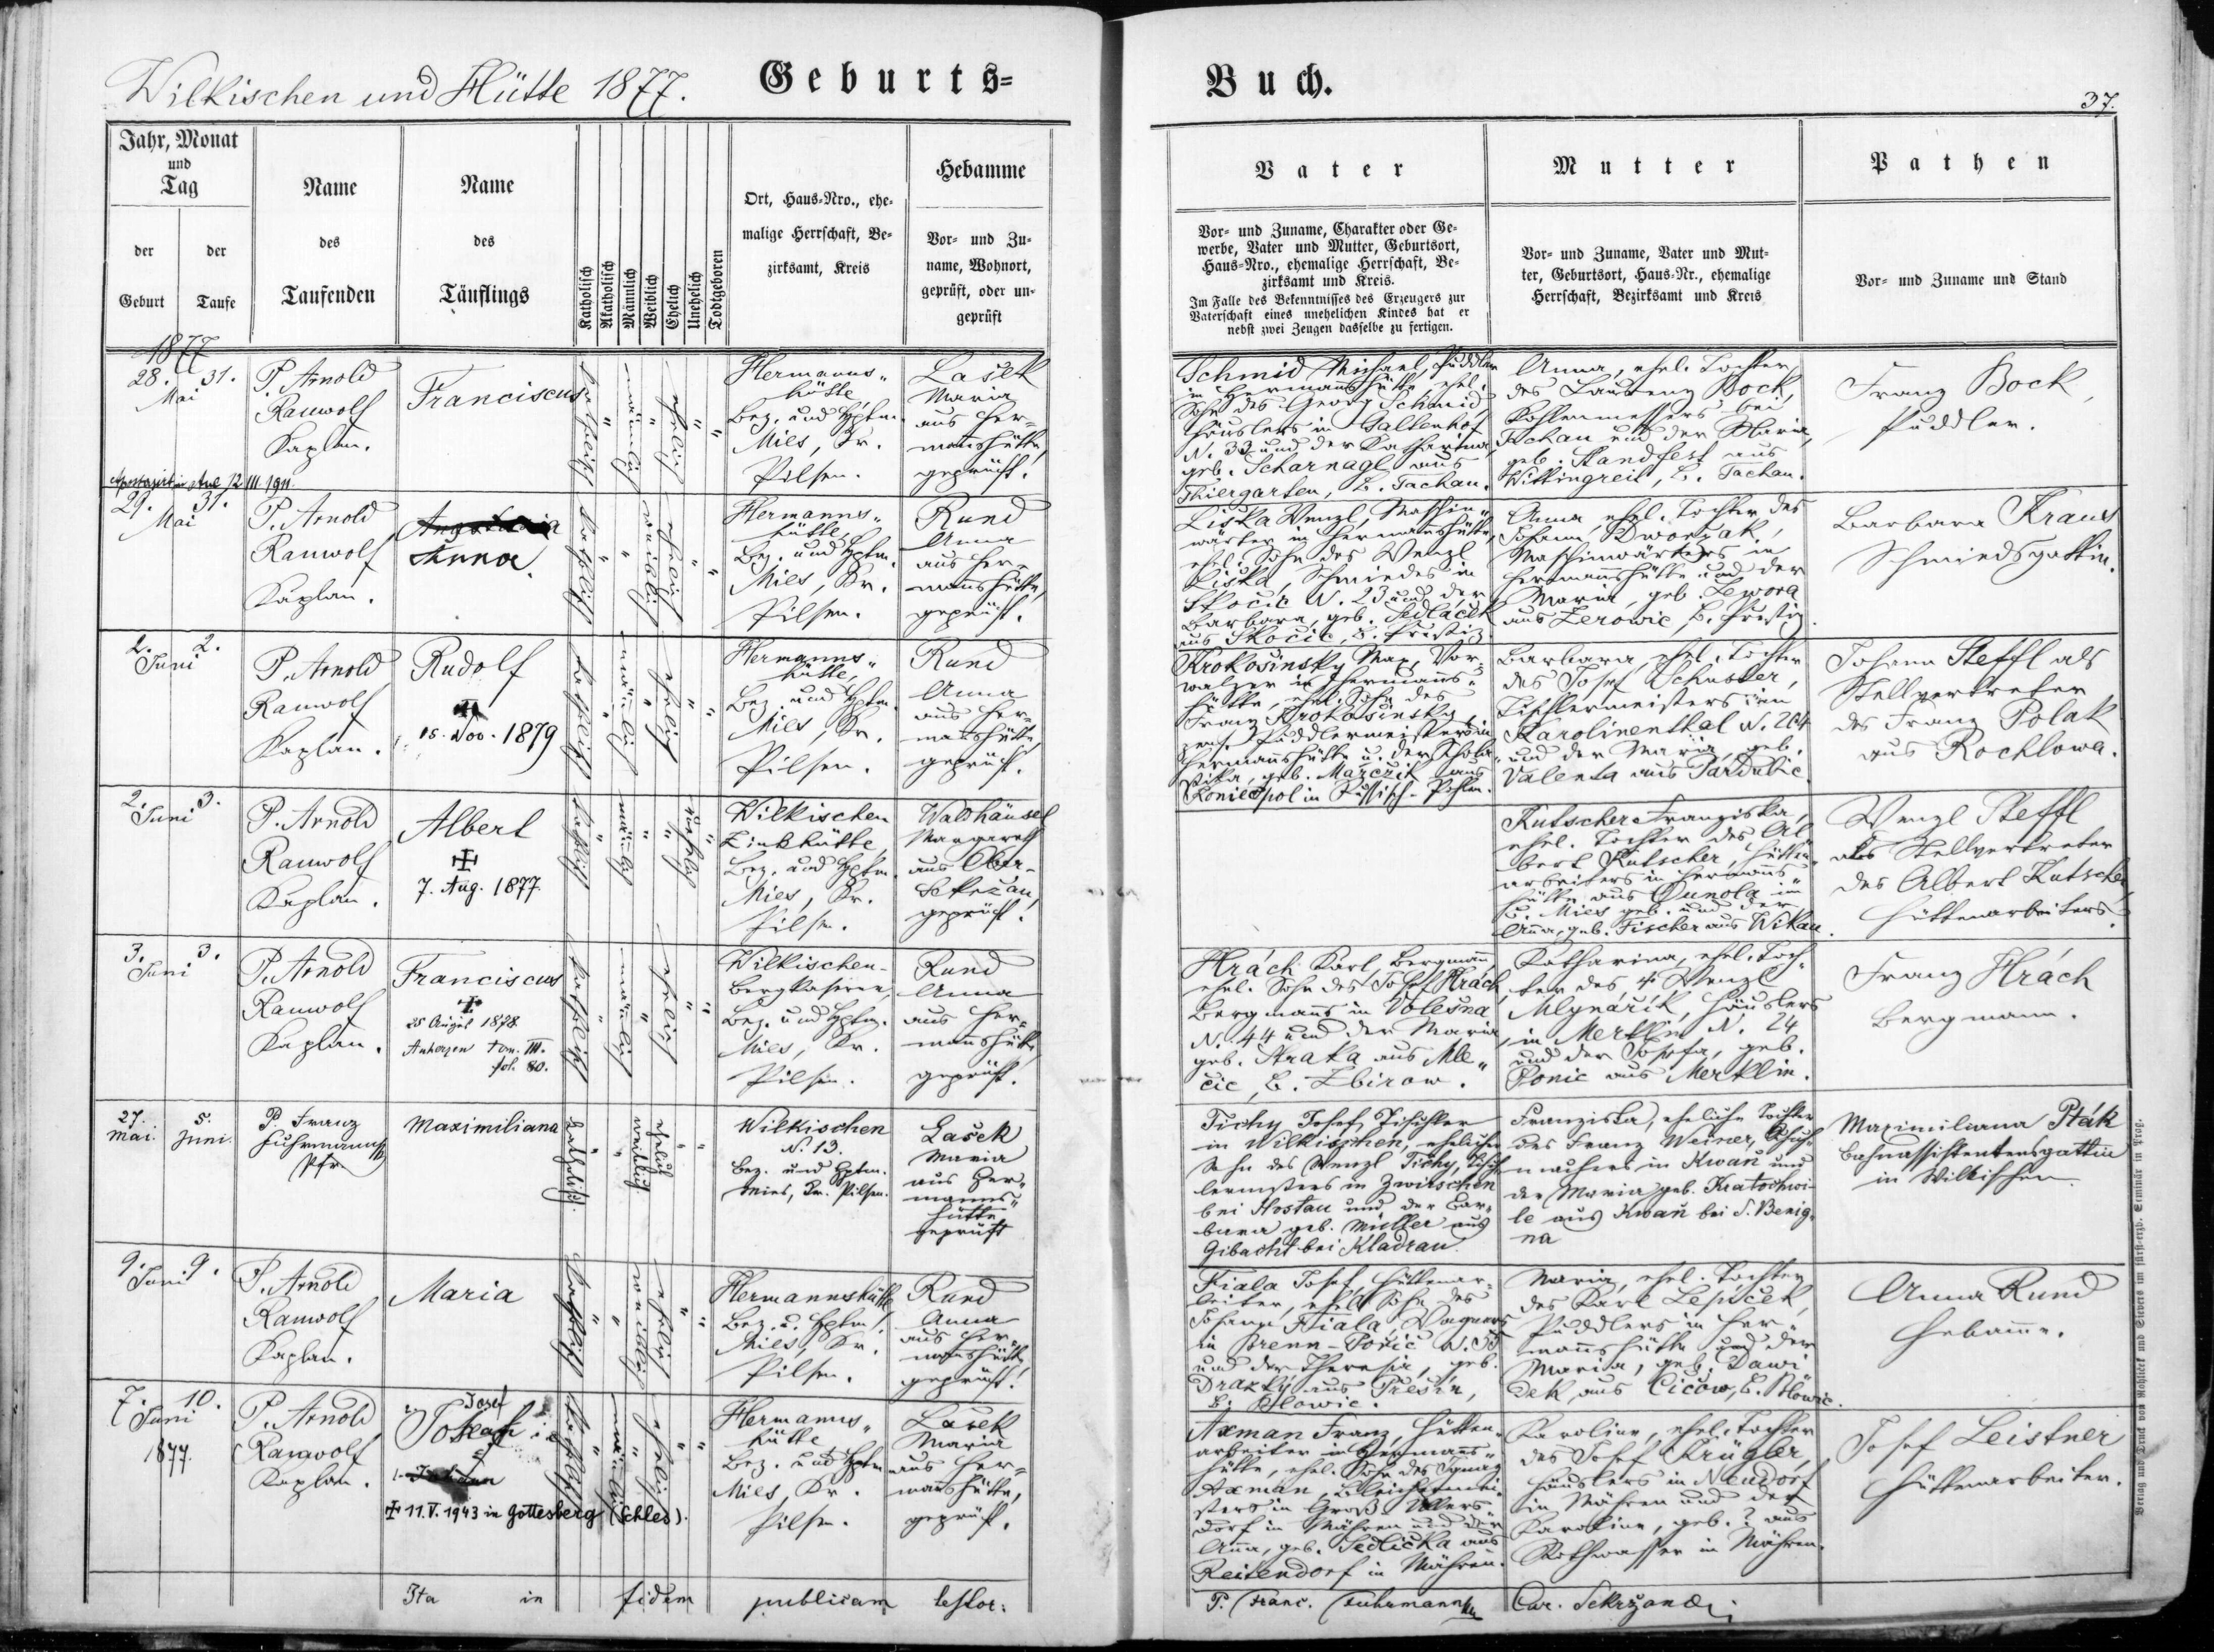 Wilkischen und Hütte 1877.
Geburts=
Buch.
37.
Jahr, Monat
und
Tag
der
Geburt
der
Taufe
Name
des
Taufenden
Name
des
Täuflings
Katholisch
Akatholisch
Männlich
Weiblich
Ehelich
Unehelich
Todtgeboren
Ort, Haus-Nro., ehe-
malige Herrschaft, Be-
zirksamt, Kreis
Hebamme
Vor- und Zu-
name, Wohnort,
geprüft, oder un-
geprüft
Vater
Vor- und Zuname, Charakter oder Ge-
werbe, Vater und Mutter, Geburtsort,
Haus-Nro., ehemalige Herrschaft, Be-
zirksamt und Kreis.
Im Falle des Bekenntnisses des Erzeugers zur
Vaterschaft eines unehelichen Kindes hat er
nebst zwei Zeugen dasselbe zu fertigen.
Mutter
Vor- und Zuname, Vater und Mut-
ter, Geburtsort, Haus-Nr., ehemalige
Herrschaft, Bezirksamt und Kreis
Pathen
Vor- und Zuname und Stand
1877
28. 31.
Mai
P. Arnold
Rauwolf
Kaplan.
Franciscus
katholisch
männlich
ehelich
Hermanns-
hütte,
Bez. und Hptm.
Mies, Kr.
Pilsen.
Lašek
Maria
aus Her-
mannshütte,
geprüft.
Schmid Michael, Puddler
in Hermannshütte, ehel.
Sohn des Georg Schmid,
Häuslers in Galtenhof
N. 33 und der Katharina,
geb. Scharnagl aus
Thiergarten, B. Tachau.
Anna, ehel. Tochter
des Laurenz Bock,
Kohlenmessers bei
Tachau und der Maria,
geb. Standfest aus
Wittingreit, B. Tachau.
Franz Bock,
Puddler.
12 III 1911.
29. 31.
Mai
P. Arnold
Rauwolf
Kaplan.
Anna.
katholisch
weiblich
ehelich
Hermanns-
hütte,
Bez. und Hptm.
Mies, Kr.
Pilsen.
Rund
Anna
aus Her-
mannshütte,
geprüft.
Liška Wenzl, Maschin-
wärter in Hermannshütte,
ehel. Sohn des Wenzl
Liška, Schmiedes in
Skočic N. 23 und der
Barbara, geb. Sedláček
aus Skočic, B. Prestiz.
Anna, ehel. Tochter des
Johann Dworžak,
Maschinwärters in
Hermannshütte und der
Maria, geb. Lewora
aus Zerowic, B. Prestiz.
Barbara Kraus
Schmiedsgattin.
2. 2.
Juni
P. Arnold
Rauwolf
Kaplan.
Rudolf
15. Nov. 1879
katholisch
männlich
ehelich
Hermanns-
hütte,
Bez. und Hptm.
Mies, Kr.
Pilsen.
Rund
Anna
aus Her-
mannshütte,
geprüft.
Krokošinsky Max, Vor-
walzer in Hermanns-
hütte, ehel. Sohn des
Franz Krokošinsky,
pens. Puddlermeisters in
Hermannshütte u. der Schola-
stika, geb. Marczik aus
Koniecpol in Russisch-Pohlen.
Barbara, ehel. Tochter
des Josef Schuster,
Tischlermeisters in
Karolinenthal N. 204
und der Maria, geb.
Valenta aus Pardubic.
Johann Steffl als
Stellvertreter
des Franz Polak
aus Rochlowa.
2. 3.
Juni
P. Arnold
Rauwolf
Kaplan.
Albert
✠
7. Aug. 1877
katholisch
männlich
unehelich
Wilkischen
Zinkhütte,
Bez. und Hptm.
Mies, Kr.
Pilsen.
Waldhäusel
Margareth
aus Ober-
Sekržan,
geprüft.
Kutscher Franziska,
ehel. Tochter des Al-
bert Kutscher, Hütten-
arbeiters in Hermanns-
hütte aus Ounola im
B. Mies geb. und der
Anna, geb. Fischer aus Wikau.
Wenzl Steffl
als Stellvertreter
des Albert Kutscher,
Hüttenarbeiters.
3. 3.
Juni
P. Arnold
Rauwolf
Kaplan.
Franciscus
✠
25 August 1878.
Auherzen tom. III.
fol. 80.
katholisch
männlich
ehelich
Wilkischen-
Bergkaserne,
Bez. und Hptm.
Mies, Kr.
Pilsen.
Rund
Anna
aus Her-
mannshütte,
geprüft.
Hrách Karl, Bergmann
ehel. Sohn des Josef Hrách,
Bergmanns in Volešna
N. 44 und der Maria,
geb. Straka aus Mle-
čic, B. Zbirow.
Katharina, ehel. Toch-
ter des † Wenzl
Mlynářik, Häuslers
in Merklin N. 24
und der Josefa, geb.
Konic aus Merklin.
Franz Hrách
Bergmann.
27. 5.
Mai. Juni.
P. Franz
Fuhrmann
Pfr.
Maximiliana
katholisch
weiblich
ehelich
Wilkischen
N. 13.
Bez. und Hptm.
Mies, Kr. Pilsen.
Lašek
Maria
aus Her-
manns-
hütte
geprüft
Tichy Josef, Tischler
in Wilkischen, ehelicher
Sohn des Wenzl Tichy, Tisch-
lermeisters in Zwirschen
bei Hostau und der Bar-
bara geb. Müller aus
Gibacht bei Kladrau.
Franziska, eheliche Tochter
des Franz Weiner, Schuh-
machers in Kwaň und
der Maria geb. Kratochwi-
le aus Kwaň bei S. Benig-
na
Maximiliana Pták
Bahnassistentensgattin
in Wilkischen.
9. 9.
Juni
P. Arnold
Rauwolf
Kaplan.
Maria
katholisch
weiblich
ehelich
Hermannshütte
Bez. u. Hptm.
Mies, Kr.
Pilsen.
Rund
Anna
aus Her-
mannshütte
geprüft.
Fiala Josef, Hüttenar-
beiter, ehel. Sohn des
Johann Fiala, Wagners
in Brenn-Pořič
und der Theresia, geb.
Drazký aus Přešin,
B. Blowic.
Maria, ehel. Tochter
des Karl Lepiček,
Puddlers in Her-
mannshütte und der
Maria, geb. Dawi-
dek aus Čičow, B. Blowic.
Anna Rund
Hebamme.
7. 10.
Juni
1877.
P. Arnold
Rauwolf
Kaplan.
Josef
✠ 11. V. 1943 in Gottesberg (Schles).
katholisch
männlich
ehelich
Hermanns-
hütte
Bez. und Hptm
Mies, Kr.
Pilsen.
Lašek
Maria
aus Her-
mannshütte,
geprüft.
Axman Franz, Hütten-
arbeiter in Hermanns-
hütte, ehel. Sohn des Ignaz
Axman, Bleichmei-
sters in Groß Ullers-
dorf in Mähren und der
Anna, geb. Sedlička aus
Reitendorf in Mähren.
Karoline, ehel. Tochter
des Josef Krügler,
Häuslers in Neudorf
in Mähren und der
Karoline, geb. ? aus
Rothwasser in Mähren.
Josef Leistner
Hüttenarbeiter.
Ita in fidem publicam testor:
P. Franc. Fuhrmann
Cur. Sekrzan
Verlag und Druck von Rohliček und Sievers im fürst-erzb. Seminär in Prag.